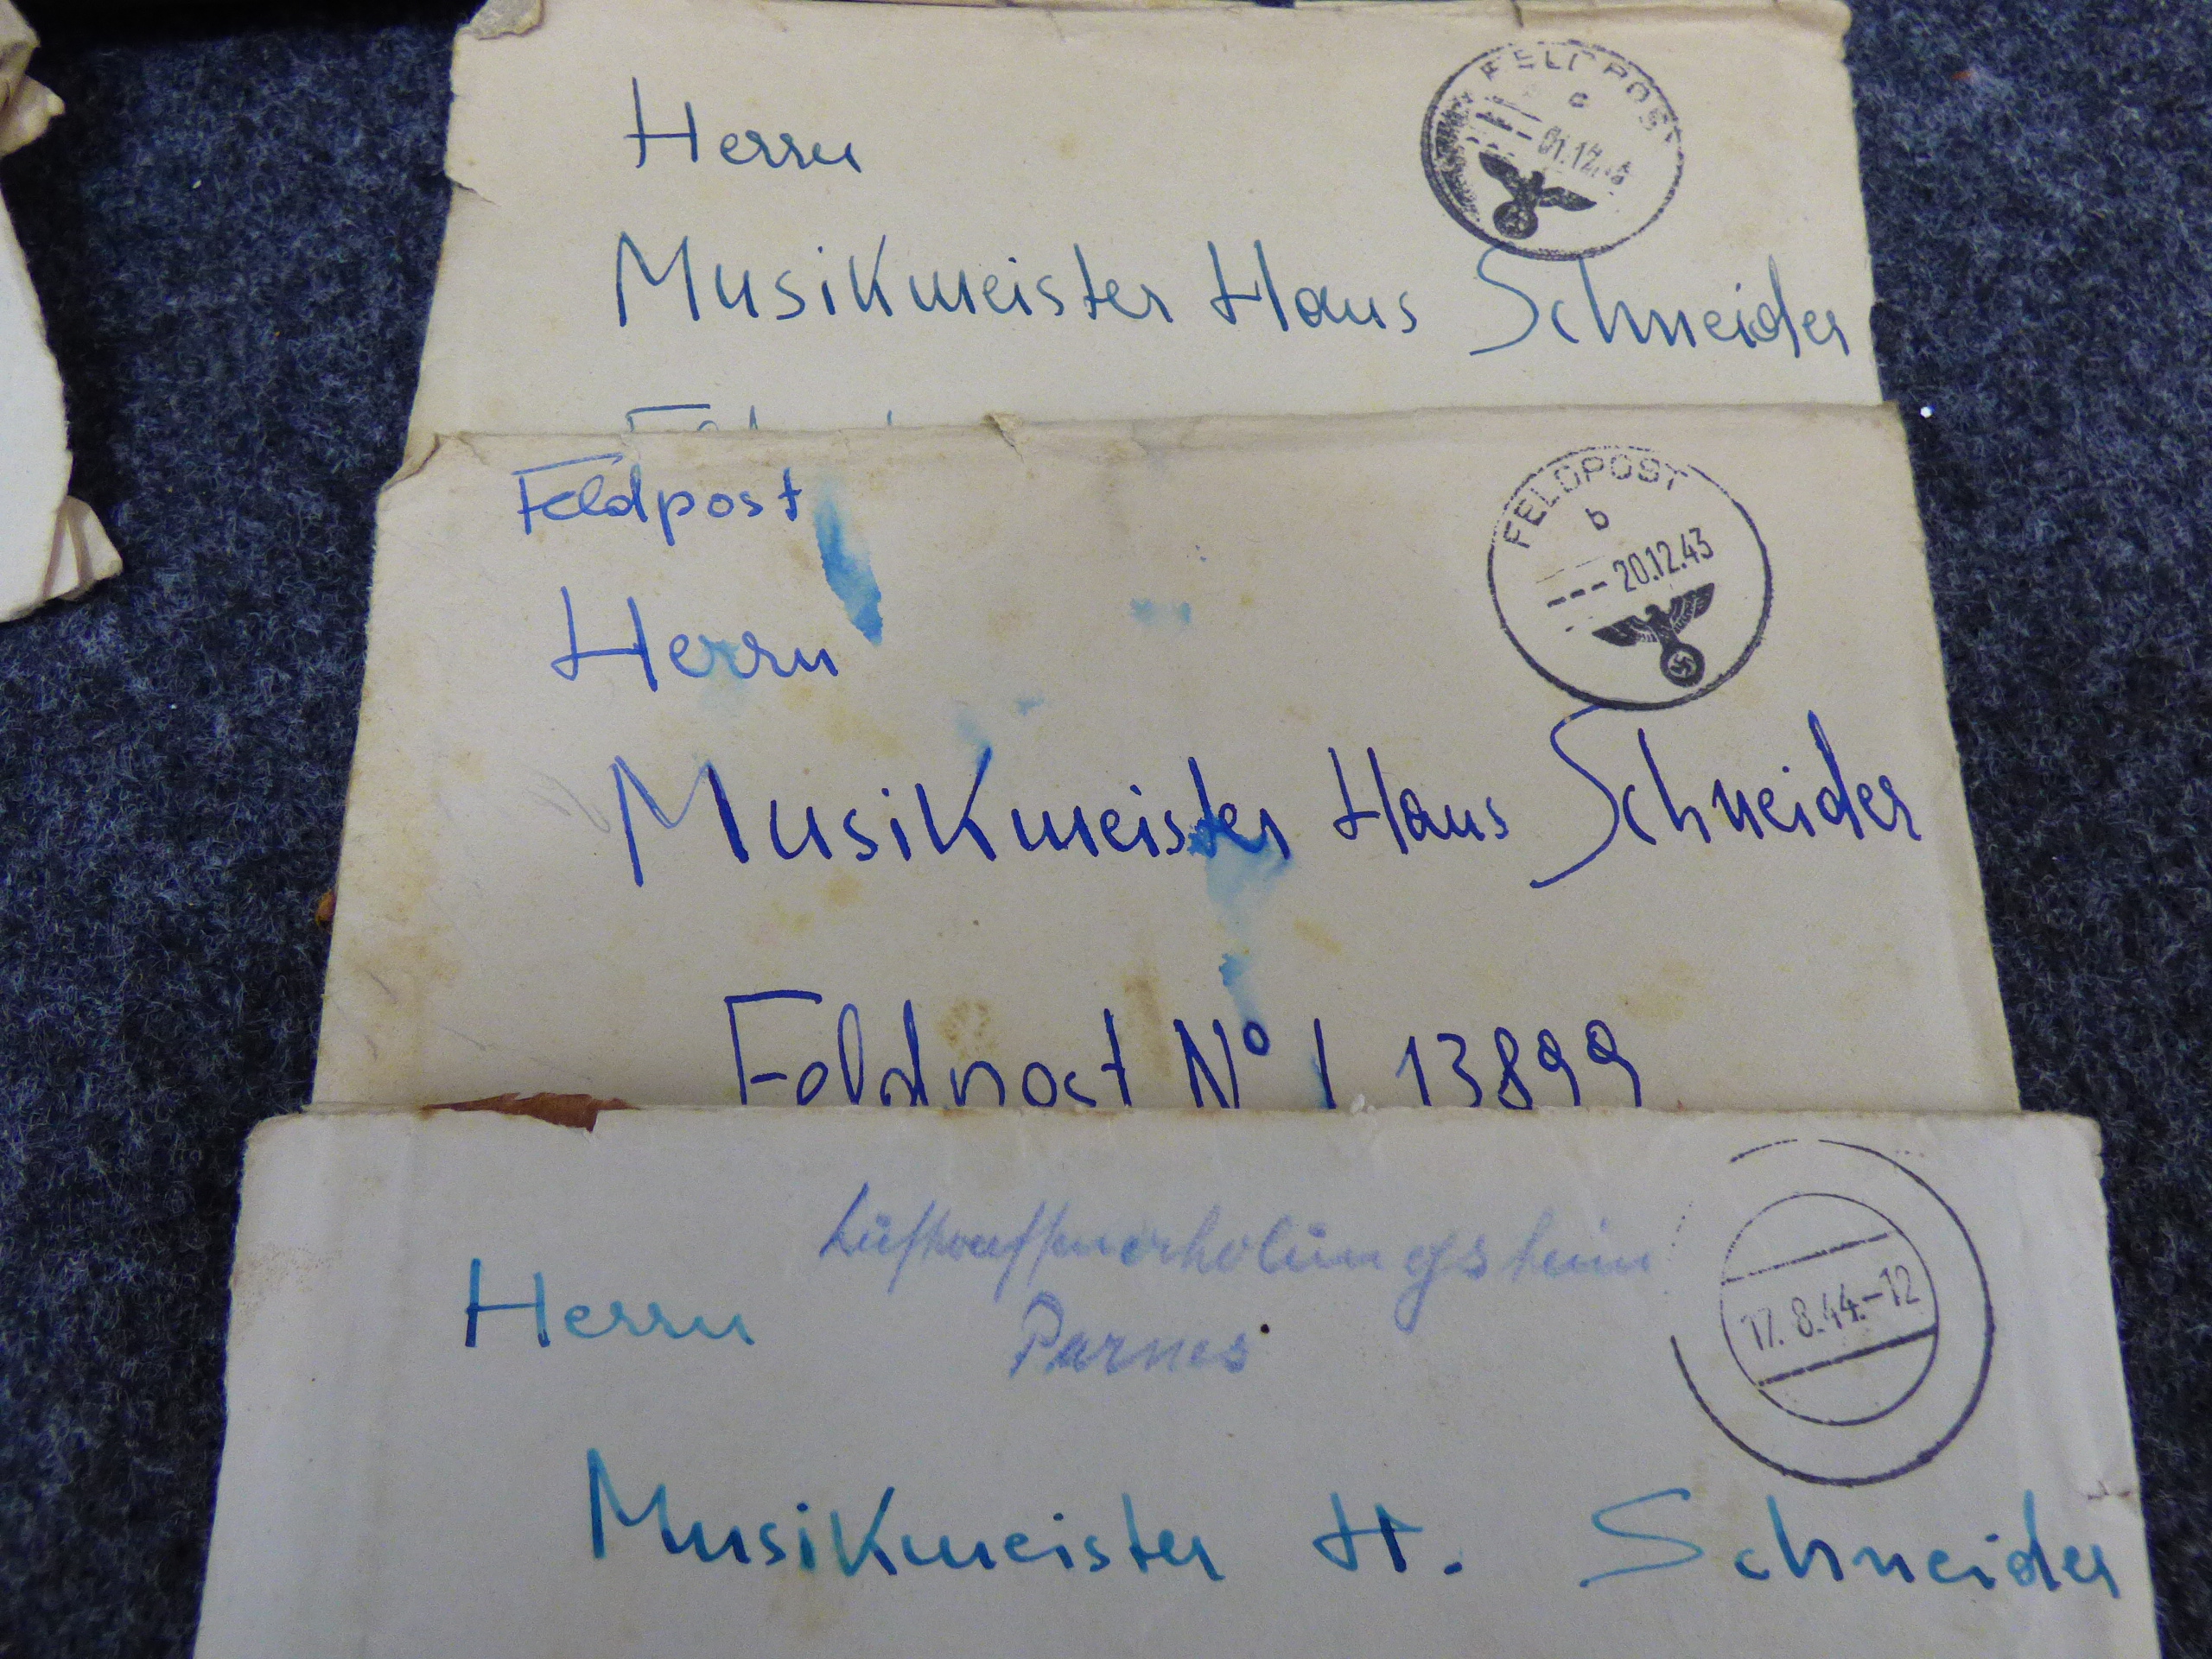 Herrn
FELDPOST
c
Musikmeister Hans Schneider
Feldpost
FELDPOST
b
20.12.43
Herrn
Musikmeister Hans Schneider
Feldpost No L 13899
Luftwaffenerholungsheim
Parnes
Herrn
17.8.44.-12
Musikmeister H. Schneider